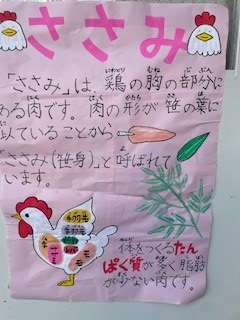 ささみ
「ささみ」は、鶏の胸の部分に
ある肉です。肉の形が笹の葉に
似ていることから
「ささみ(笹身)」と呼ばれて
います。
体をつくるたん
ぱく質が多く脂肪
が少ない肉です。